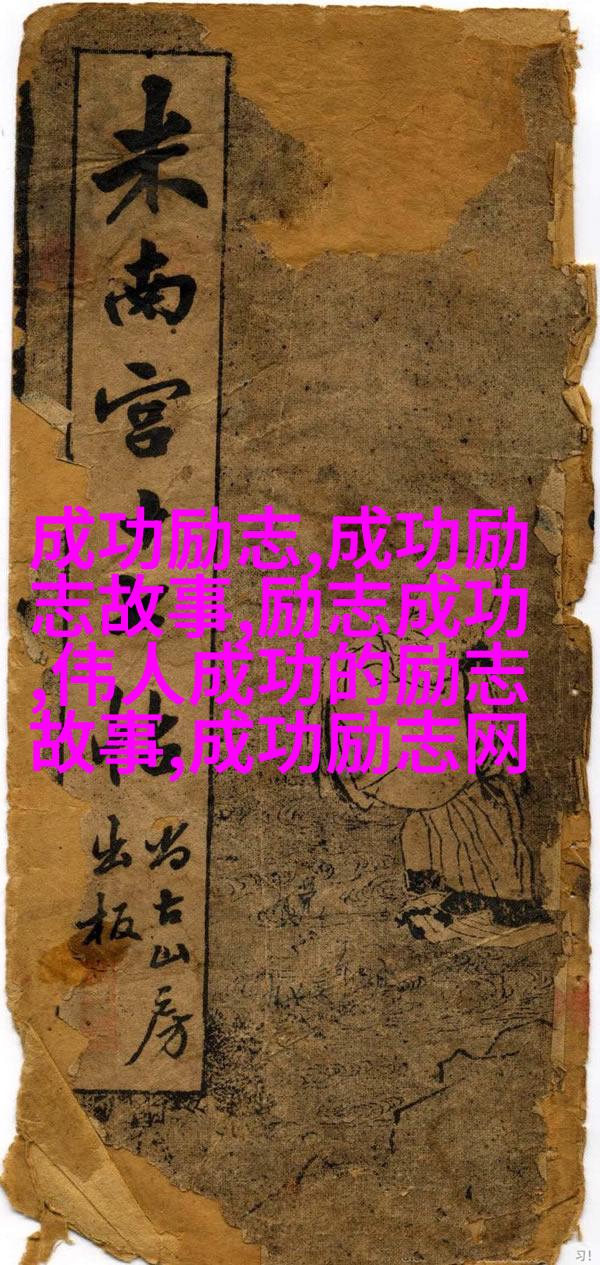 米南宫
尚古山房
出板
成功励志,成功励
志故事,励志成功
,伟人成功的励志
故事,成功励志网
习!